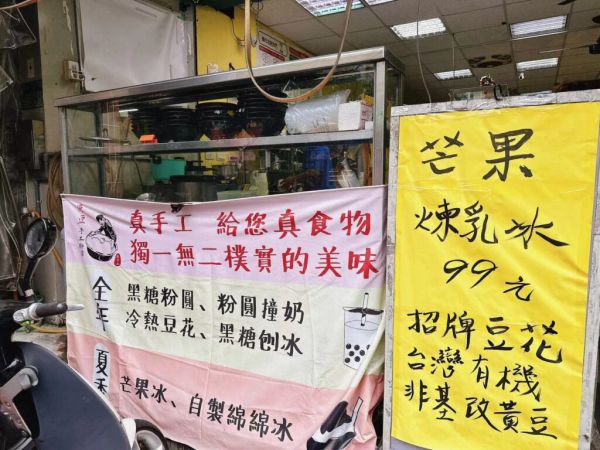 真手工 給您真食物
獨一無二樸實的美味
全年
黑糖粉圓、粉圓撞奶
冷熱豆花、黑糖刨冰
夏季
芒果冰、自製綿綿冰
芒果
煉乳冰
99元
招牌豆花
台灣有機
非基改黃豆